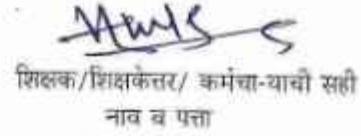 शिक्षक/शिक्षकेत्तर/ कर्मचा-याची सही
नाव व पत्ता